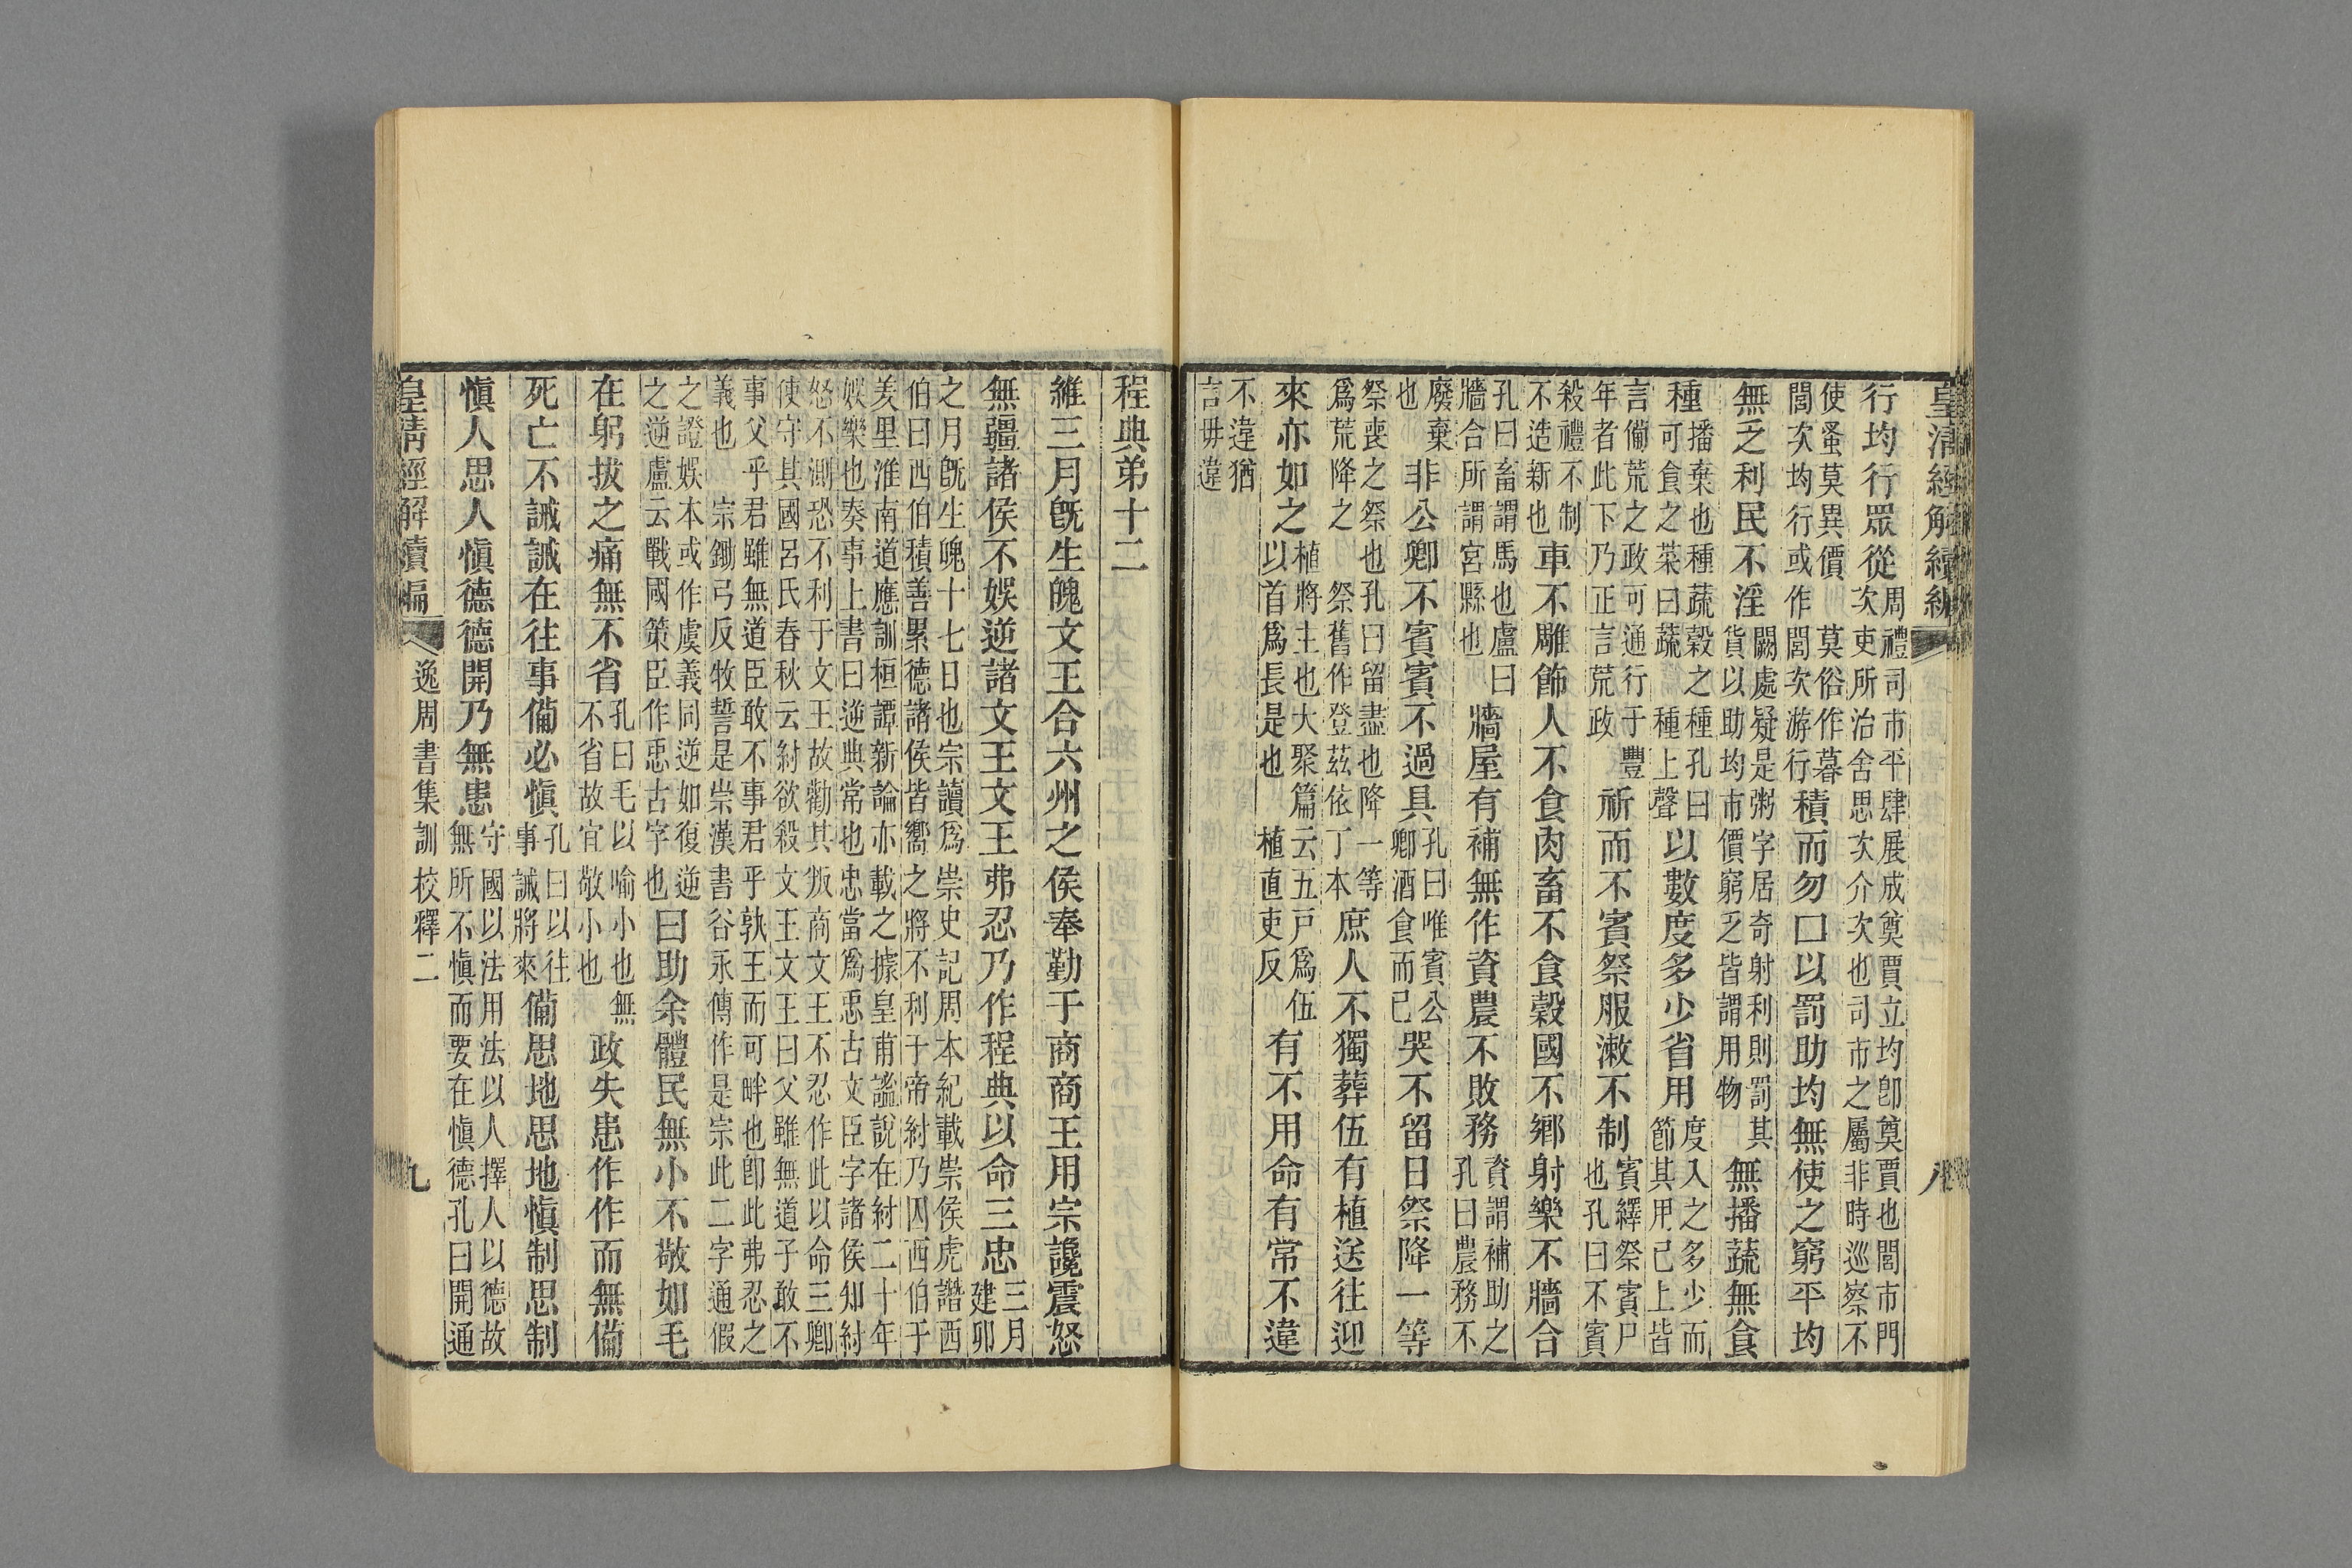 皇清經解續編 八
行均行眾從周禮司市平肆展成奠賈立均卽奠賈也閭市門
次吏所治舍思次介次也司市之屬非時巡察不
使蚤莫異價 莫俗作暮
閭次均行或作閭次游行積而勿囗以罰助均無使之窮平均
無乏利民不淫闕處疑是粥字居奇射利則罰其
貨以助均市價窮乏皆謂用物無播蔬無食
種播棄也種蔬穀之種孔曰
可食之菜曰蔬 種上聲以數度多少省用度入之多少而
節其用已上皆
言備荒之政可通行于豐
年者此下乃正言荒政祈而不賓祭服漱不制賓繹祭賓尸
也孔曰不賓
殺禮不制
不造新也車不雕飾人不食肉畜不食穀國不鄉射樂不牆合
孔曰畜謂馬也盧曰
牆合所謂宮縣也牆屋有補無作資農不敗務資謂補助之
孔曰農務不
廢棄
也非公卿不賓賓不過具孔曰唯賓公
卿酒食而已哭不留日祭降一等
祭喪之祭也孔曰留盡也降一等
爲荒降之 祭舊作登茲依丁本庶人不獨葬伍有植送往迎
來亦如之植將主也大聚篇云五戸爲伍
以首爲長是也 植直吏反有不用命有常不違
不違猶
言毋違
程典弟十二
維三月旣生魄文王合六州之侯奉勤于商商王用宗讒震怒
無疆諸侯不娛逆諸文王文王弗忍乃作程典以命三忠三月
建卯
之月旣生魄十七日也宗讀爲崇史記周本紀載崇侯虎譖西
伯曰西伯積善累德諸侯皆嚮之將不利于帝紂乃囚西伯于
羑里淮南道應訓桓譚新論亦載之據皇甫謐說在紂二十年
娛樂也奏事上書曰逆典常也忠當爲恴古文臣字諸侯知紂
怒不測恐不利于文王故勸其叛商文王不忍作此以命三卿
使守其國呂氏春秋云紂欲殺文王文王曰父雖無道子敢不
事父乎君雖無道臣敢不事君乎孰王而可畔也卽此弗忍之
義也 宗鋤弓反牧誓是崇漢書谷永傳作是宗此二字通假
之證娛本或作虞義同逆如復逆
之逆盧云戰國策臣作恴古字也曰助余體民無小不敬如毛
在躬拔之痛無不省孔曰毛以喻小也無
不省故宜敬小也政失患作作而無備
死亡不誡誡在往事備必愼孔曰以往
事誡將來備思地思地愼制思制
愼人思人愼德德開乃無患守國以法用法以人擇人以德故
無所不愼而要在愼德孔曰開通
皇清經解續編 逸周書集訓校釋二 九